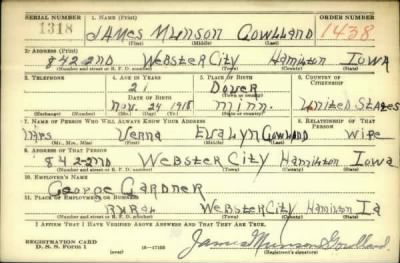 SERIAL NUMBER 1. NAME (Print) ORDER NUMBER
1318 JAMES MUNSON GOWLLAND 1438
(First) (Middle) (Last)
2. ADDRESS (Print)
842-2ND WEBSTER CITY HAMILTON IOWA
(Number and street or R. F. D. number) (Town) (County) (State)
3. TELEPHONE 4. AGE IN YEARS 5. PLACE OF BIRTH 6. COUNTRY OF CITIZENSHIP
21 DOVER
DATE OF BIRTH (Town or county)
NOV. 24 1918 MINN. United States
(Exchange) (No.) (Mo.) (Day) (Yr.) (State or country)
7. NAME OF PERSON WHO WILL ALWAYS KNOW YOUR ADDRESS 8. RELATIONSHIP OF THAT PERSON
Mrs Verna Evalyn Gowlland Wife
(Mr., Mrs., Miss) (First) (Middle) (Last)
9. ADDRESS OF THAT PERSON
842-2ND WEBSTER CITY HAMILTON Iowa
(Number and street or R. F. D. number) (Town) (County) (State)
10. EMPLOYER'S NAME
George Gardner
11. PLACE OF EMPLOYMENT OR BUSINESS
RURAL WEBSTER CITY Hamilton Ia
(Number and street or R. F. D. number) (Town) (County) (State)
I AFFIRM THAT I HAVE VERIFIED ABOVE ANSWERS AND THAT THEY ARE TRUE.
REGISTRATION CARD
D. S. S. Form 1 (over) 16-17105 James Munson Gowlland
(Registrant's signature)